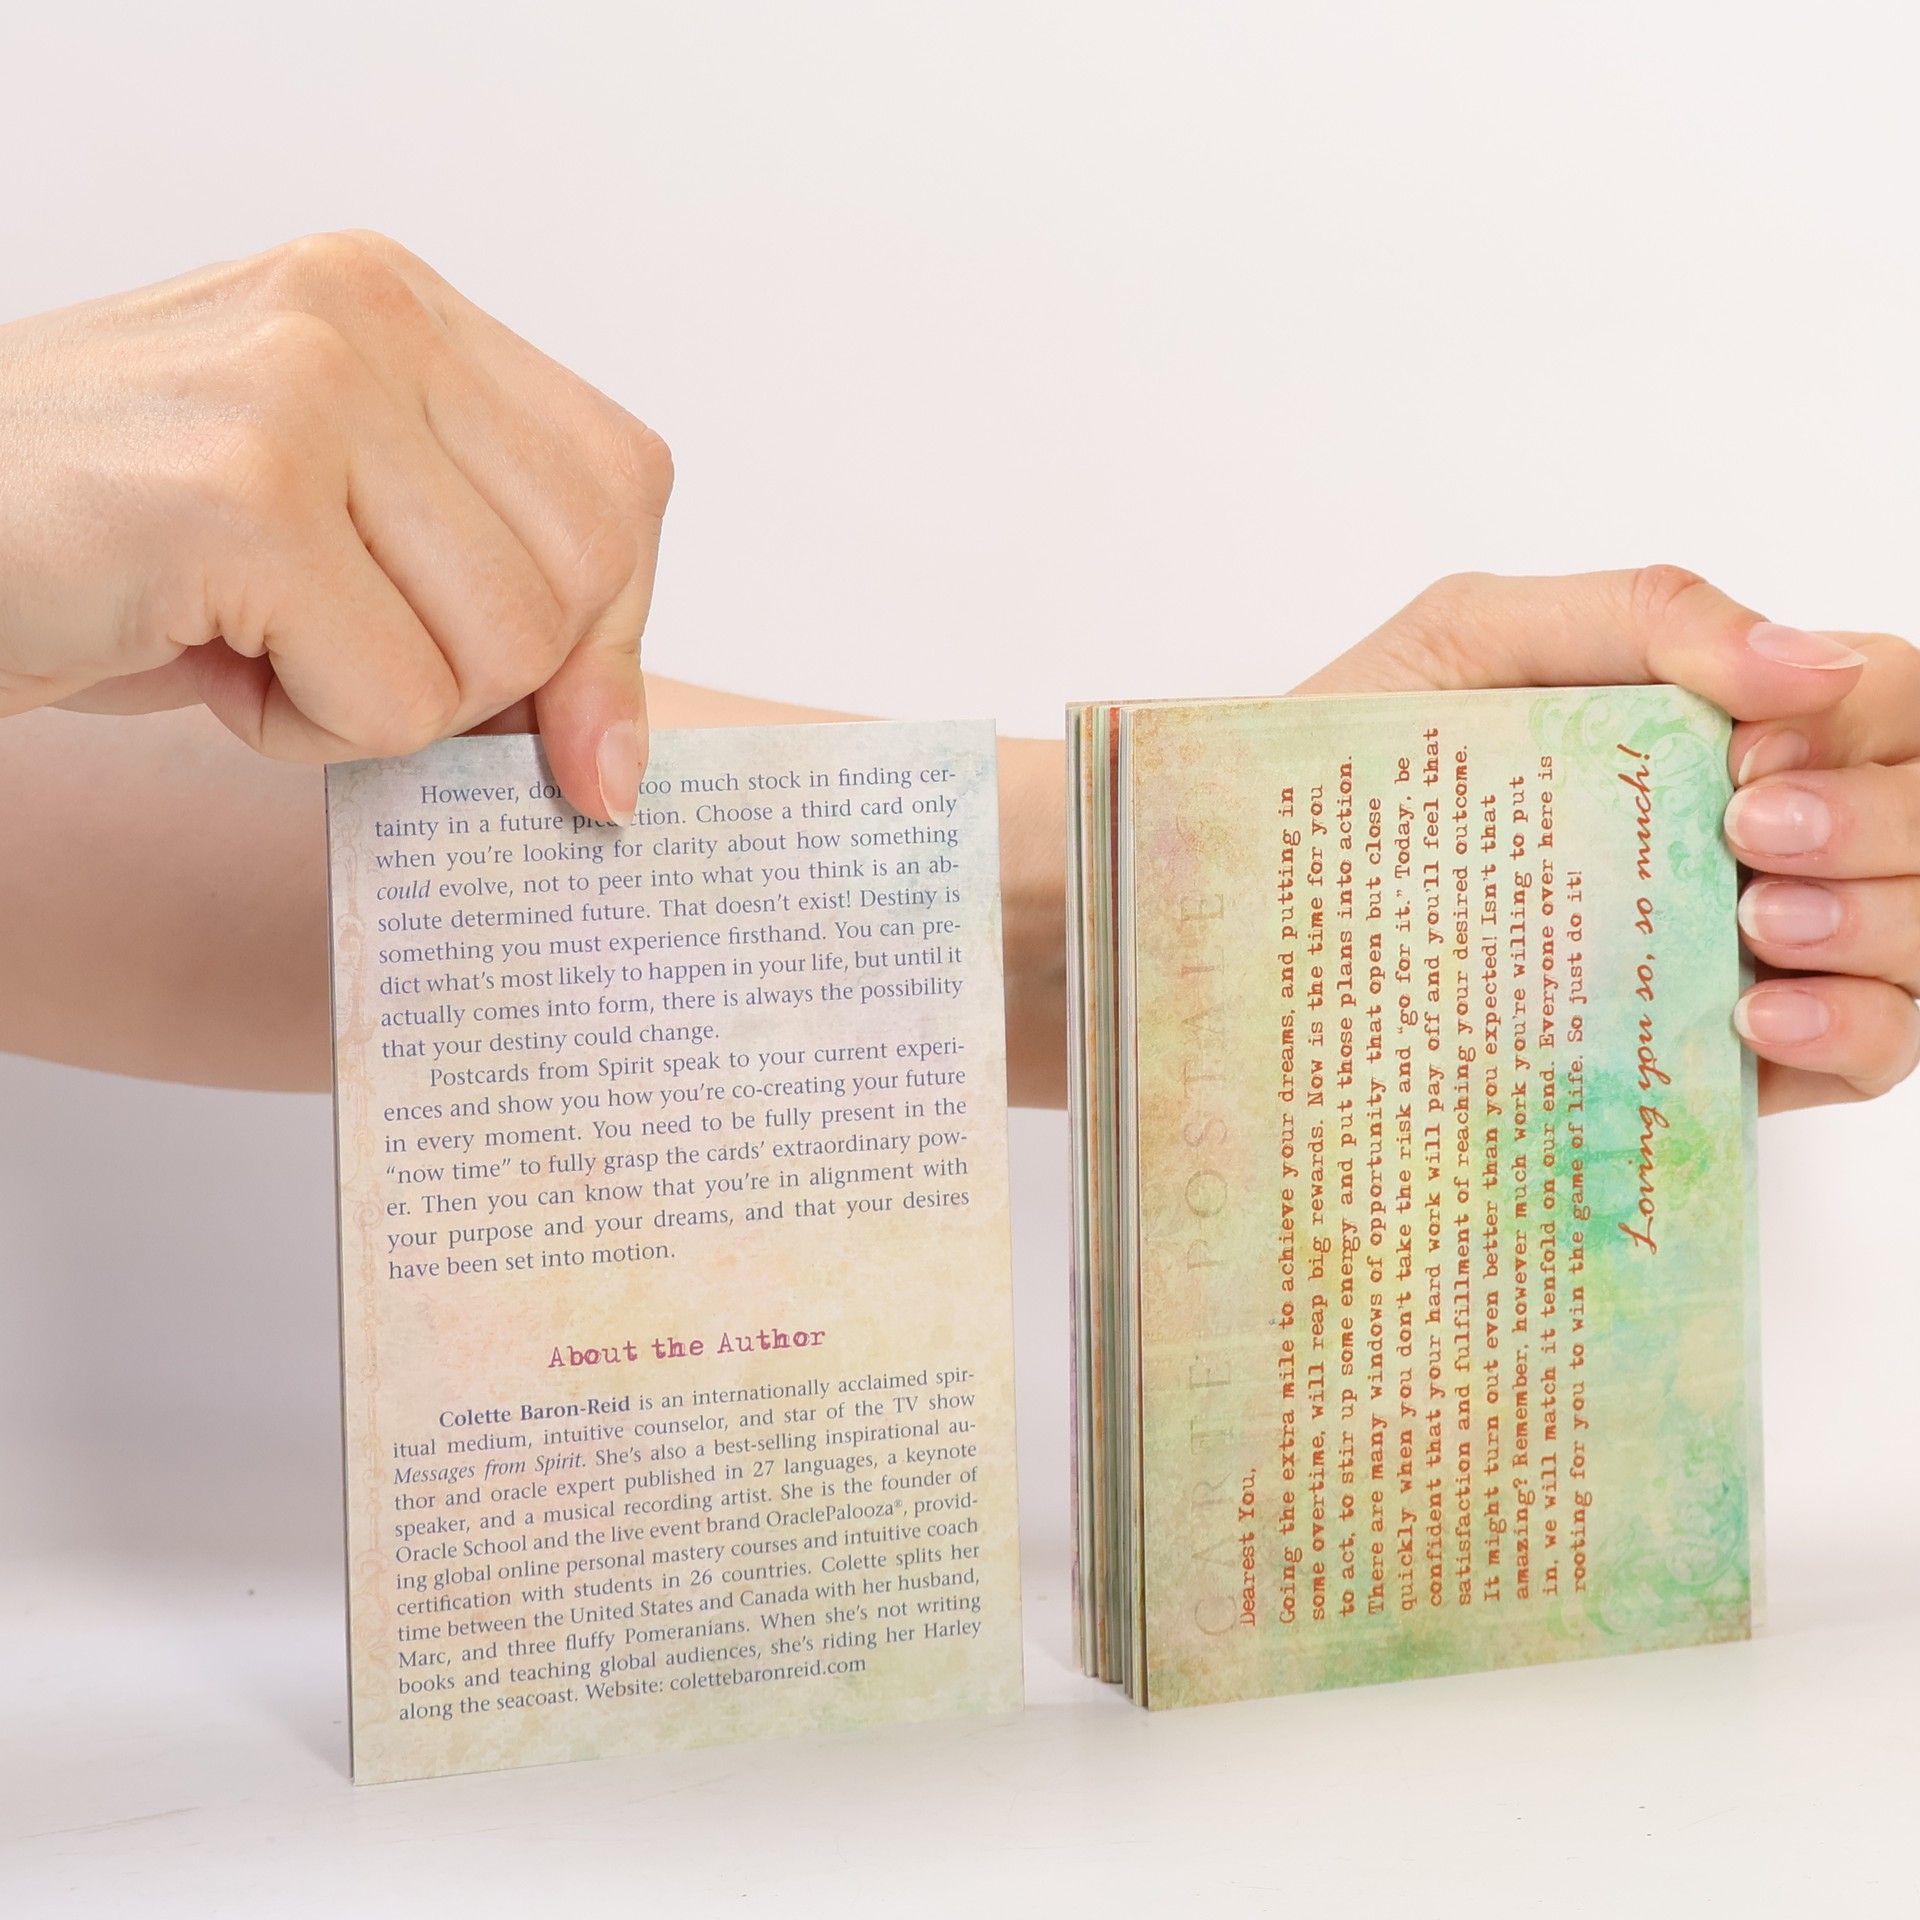 However, don too much stock in finding cer-
tainty in a future prediction. Choose a third card only
when you're looking for clarity about how something
could evolve, not to peer into what you think is an ab-
solute determined future. That doesn't exist! Destiny is
something you must experience firsthand. You can pre-
dict what's most likely to happen in your life, but until it
actually comes into form, there is always the possibility
that your destiny could change.
Postcards from Spirit speak to your current experi-
ences and show you how you're co-creating your future
in every moment. You need to be fully present in the
"now time" to fully grasp the cards' extraordinary pow-
er. Then you can know that you're in alignment with
your purpose and your dreams, and that your desires
have been set into motion.
About the Author
Colette Baron-Reid is an internationally acclaimed spir-
itual medium, intuitive counselor, and star of the TV show
Messages from Spirit. She's also a best-selling inspirational au-
thor and oracle expert published in 27 languages, a keynote
speaker, and a musical recording artist. She is the founder of
Oracle School and the live event brand OraclePalooza®, provid-
ing global online personal mastery courses and intuitive coach
certification with students in 26 countries. Colette splits her
time between the United States and Canada with her husband,
Marc, and three fluffy Pomeranians. When she's not writing
books and teaching global audiences, she's riding her Harley
along the seacoast. Website: colettebaronreid.com
CARTE POSTALE
Dearest You,
Going the extra mile to achieve your dreams, and putting in
some overtime, will reap big rewards. Now is the time for you
to act, to stir up some energy and put those plans into action.
There are many windows of opportunity that open but close
quickly when you don't take the risk and "go for it." Today, be
confident that your hard work will pay off and you'll feel that
satisfaction and fulfillment of reaching your desired outcome.
It might turn out even better than you expected! Isn't that
amazing? Remember, however much work you're willing to put
in, we will match it tenfold on our end. Everyone over here is
rooting for you to win the game of life. So just do it!
Loving you so, so much!